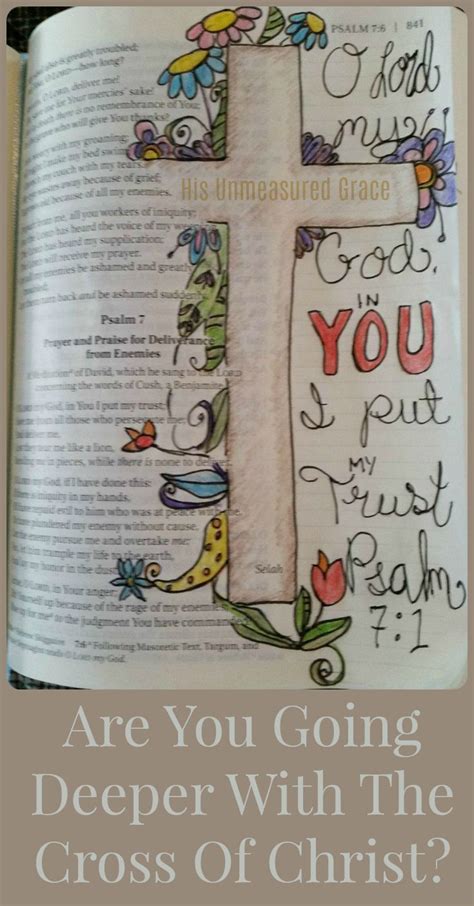 PSALM 7:6 | 841
is greatly troubled;
O LORD—how long?
LORD, deliver me!
me for Your mercies' sake!
there is no remembrance of You;
who will give You thanks?
with my groaning;
I make my bed swim;
my couch with my tears.
wastes away because of grief;
because of all my enemies.
from me, all you workers of iniquity;
LORD has heard the voice of my
LORD has heard my supplication;
will receive my prayer.
all my enemies be ashamed and greatly
turn back and be ashamed suddenly.
Psalm 7
Prayer and Praise for Deliverance
from Enemies
of David, which he sang to the LORD
concerning the words of Cush, a Benjamite.
my God, in You I put my trust;
from all those who persecute me;
deliver me,
tear me like a lion,
me in pieces, while there is none to deliver.
my God, if I have done this:
there is iniquity in my hands,
repaid evil to him who was at peace with me,
plundered my enemy without cause,
the enemy pursue me and overtake me;
let him trample my life to the earth,
my honor in the dust.
Selah
O LORD, in Your anger;
up because of the rage of my enemies;
up for me to the judgment You have commanded!
7:6 Following Masoretic Text, Targum, and
reads O LORD my God.
His Unmeasured Grace
O Lord
my
God,
IN
YOU
I put
MY
Trust
Psalm
7:1
Are You Going
Deeper With The
Cross Of Christ?